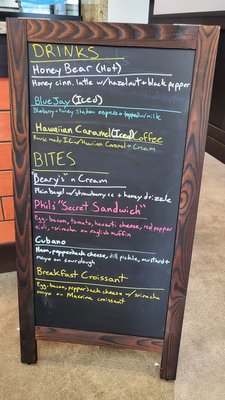 DRINKS
Honey Bear (Hot)
Honey cinn. latte w/hazelnut + black pepper
Blue Jay (Iced)
Blueberry + honey shaken espresso topped w/milk
Hawaiian Caramel (Iced) Coffee
House made Iced w/Hawaiian Caramel + Cream
BITES
"Beary's" n Cream
Plain bagel w/strawberry cc + honey drizzle
Phil's "Secret Sandwich"
Egg, bacon, tomato, havarti cheese, red pepper
aioli, + sriracha on english muffin
Cubano
Ham, pepperjack cheese, dill pickle, mustard +
mayo on sourdough
Breakfast Croissant
Egg, bacon, pepperjack cheese w/ sriracha
mayo on Macrina croissant